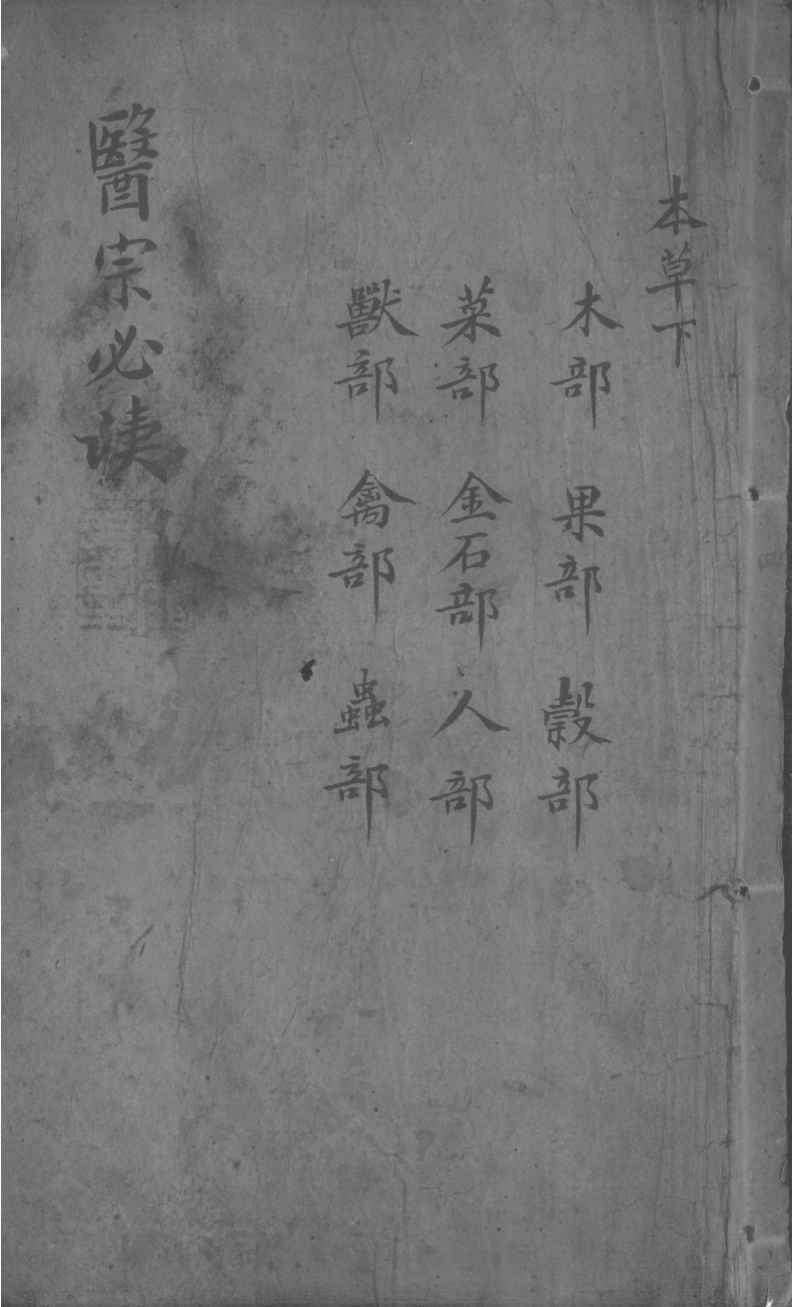 本草下
木部 果部 穀部
菜部 金石部 人部
獸部 禽部 蟲部
醫宗必讀